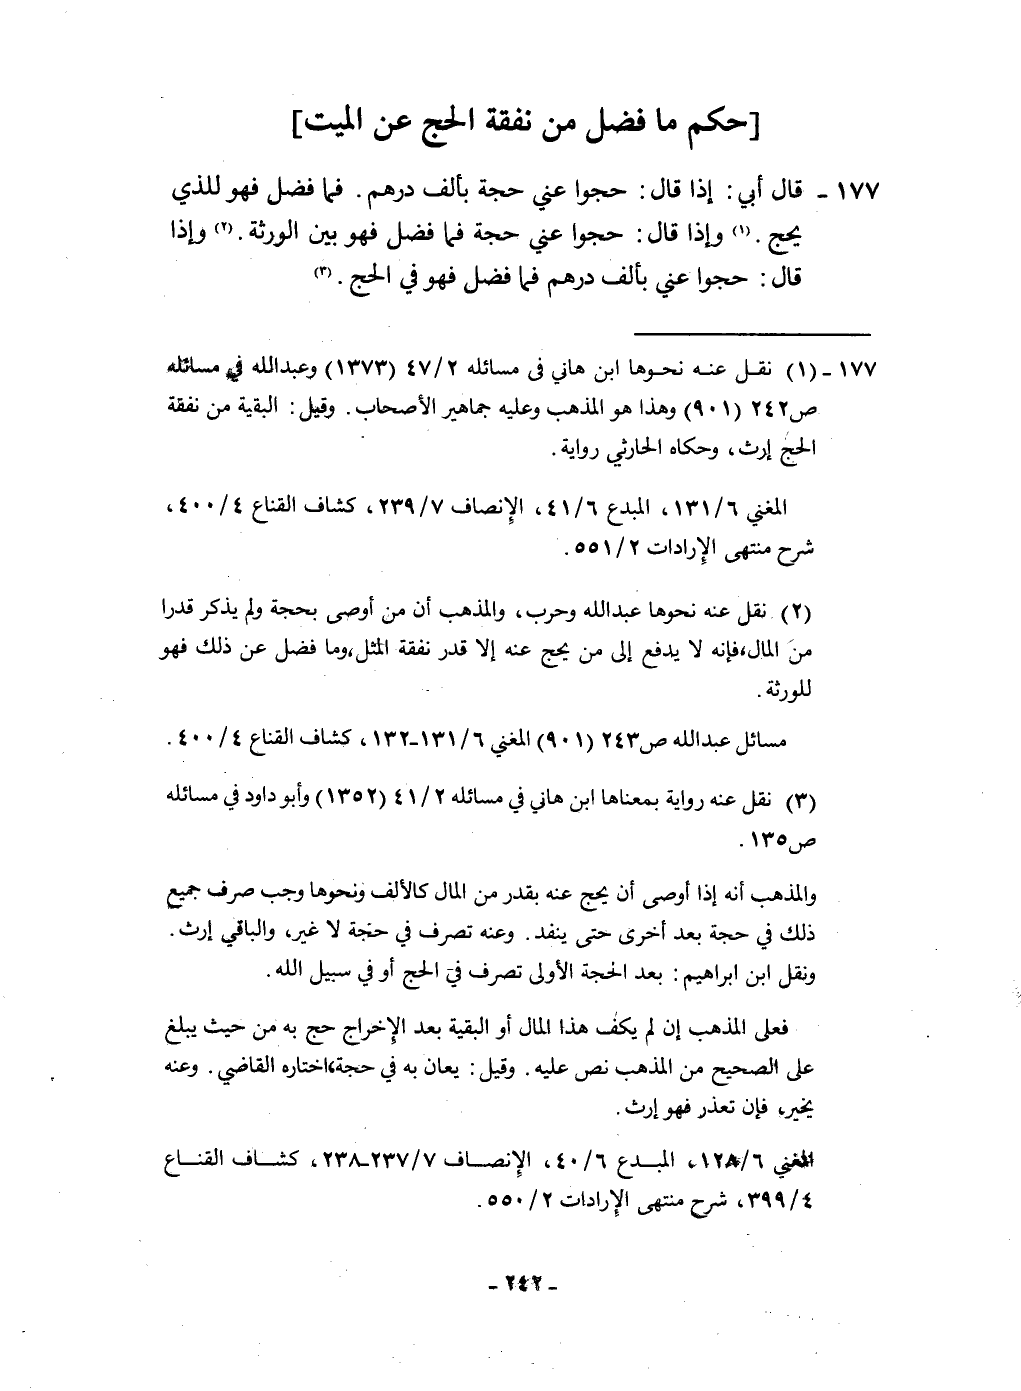 [حكم ما فضل من نفقة الحج عن الميت]
١٧٧ - قال أبي: إذا قال: حجوا عني حجة بألف درهم. فما فضل فهو للذي
يحج.(١) وإذا قال: حجوا عني حجة فما فضل فهو بين الورثة.(٢) وإذا
قال: حجوا عني بألف درهم فما فضل فهو في الحج.(٣)
١٧٧ - (١) نقل عنه نحوها ابن هاني في مسائله ٤٧/٢ (١٣٧٣) وعبدالله في مسائله
ص٢٤٢ (٩٠١) وهذا هو المذهب وعليه جماهير الأصحاب. وقيل: البقية من نفقة
الحج إرث، وحكاه الحارثي رواية.
المغني ١٣١/٦، المبدع ٤١/٦، الإنصاف ٢٣٩/٧، كشاف القناع ٤٠٠/٤،
شرح منتهى الإرادات ٥٥١/٢.
(٢) نقل عنه نحوها عبدالله وحرب، والمذهب أن من أوصى بحجة ولم يذكر قدرا
من المال،فإنه لا يدفع إلى من يحج عنه إلا قدر نفقة المثل،وما فضل عن ذلك فهو
للورثة.
مسائل عبدالله ص٢٤٣ (٩٠١) المغني ١٣١/٦-١٣٢، كشاف القناع ٤٠٠/٤.
(٣) نقل عنه رواية بمعناها ابن هاني في مسائله ٤١/٢ (١٣٥٢) وأبو داود في مسائله
ص١٣٥.
والمذهب أنه إذا أوصى أن يحج عنه بقدر من المال كالألف ونحوها وجب صرف جميع
ذلك في حجة بعد أخرى حتى ينفد. وعنه تصرف في حجة لا غير، والباقي إرث.
ونقل ابن ابراهيم: بعد الحجة الأولى تصرف في الحج أو في سبيل الله.
فعلى المذهب إن لم يكف هذا المال أو البقية بعد الإخراج حج به من حيث يبلغ
على الصحيح من المذهب نص عليه. وقيل: يعان به في حجة،اختاره القاضي. وعنه
يخير، فإن تعذر فهو إرث.
المغني ١٢٨/٦، المبدع ٤٠/٦، الإنصاف ٢٣٧/٧-٢٣٨، كشاف القناع
٣٩٩/٤، شرح منتهى الإرادات ٥٥٠/٢.
- ٢٤٢ -